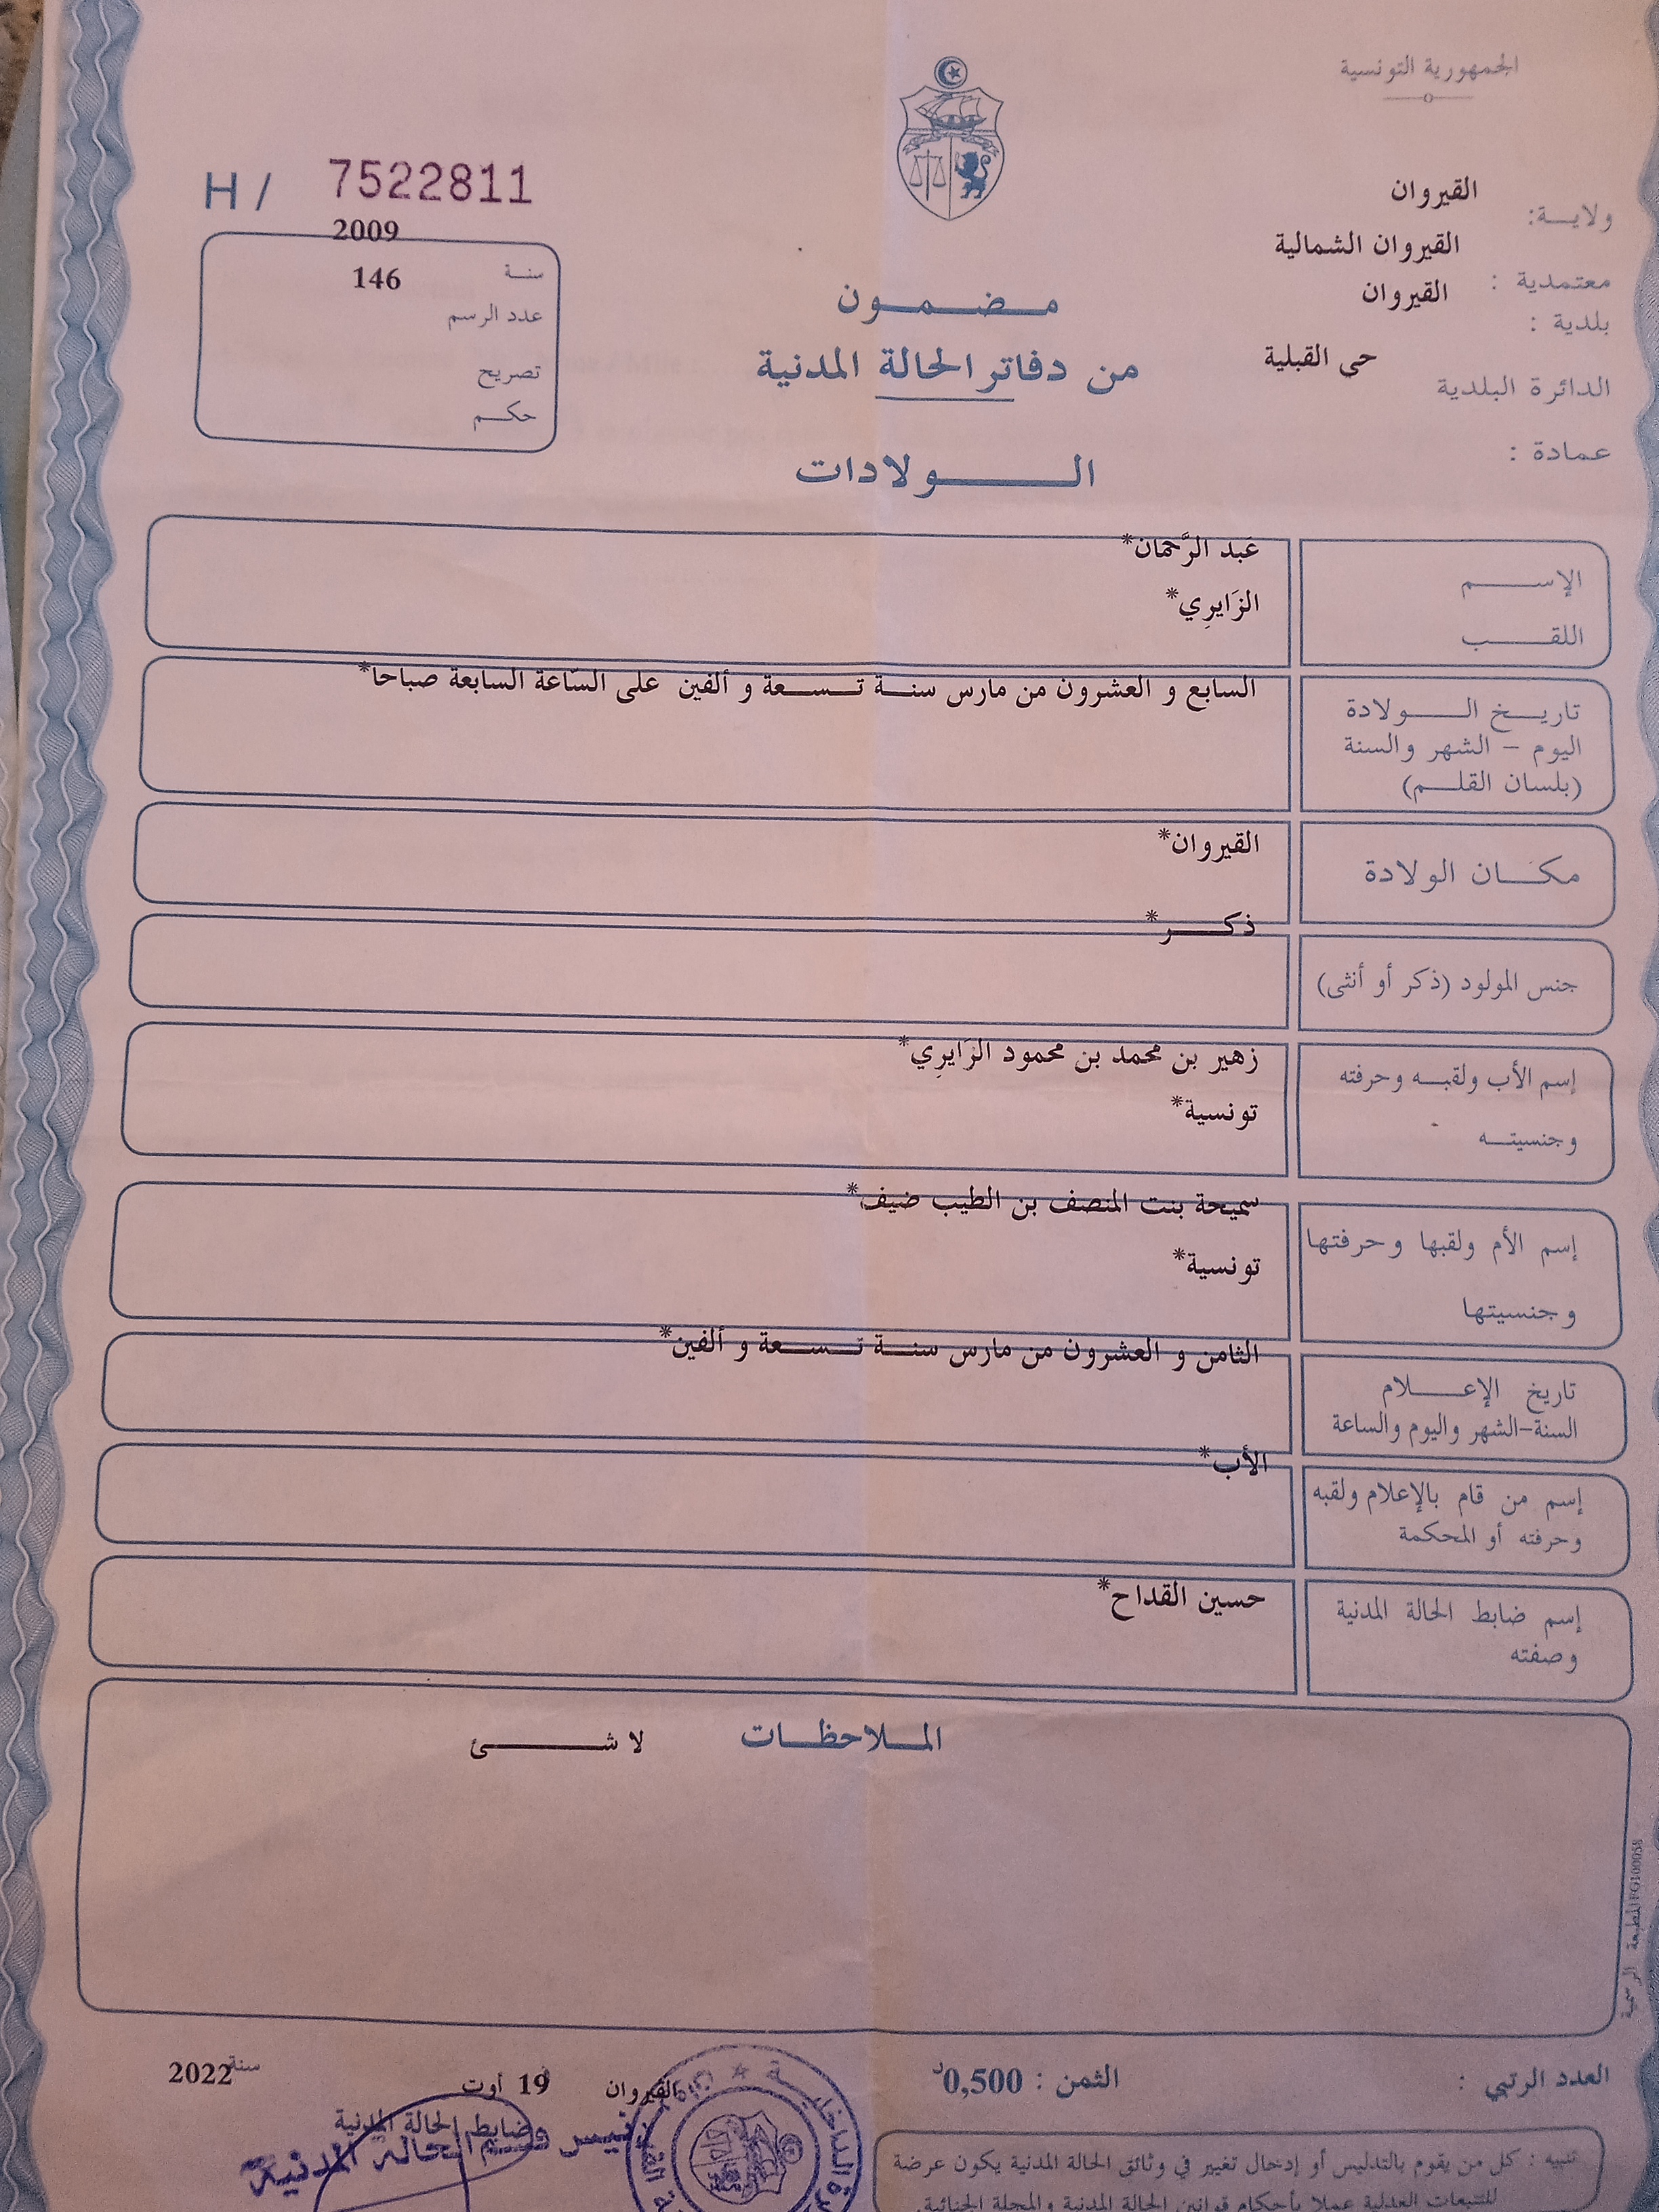 الجمهورية التونسية
ولايـــة: القيروان
معتمدية : القيروان الشمالية
بلدية : القيروان
الدائرة البلدية حى القبلية
عمادة :
H / 7522811
سنـة 2009
عدد الرسم 146
تصريح
حكـم
مـضـمـون
من دفاتر الحالة المدنية
الـــولادات
الإســـم عَبد الرَّحمَان*
اللقـــب الزَايرِي*
تاريـخ الـــولادة السابع و العشرون من مارس سنـة تـسـعة و ألفين على السّاعة السابعة صباحا*
اليوم – الشهر والسنة
(بلسان القلـم)
مكـان الولادة القيروان*
جنس المولود (ذكر أو أنثى) ذكـــر*
إسم الأب ولقبـه وحرفته زهير بن محمد بن محمود الزَايرِي*
وجنسيتـه تونسية*
إسم الأم ولقبها وحرفتها سميحة بنت المنصف بن الطيب ضيف*
وجنسيتها تونسية*
تاريخ الإعـــلام الثامن و العشرون من مارس سنـة تـسـعة و ألفين*
السنة–الشهر واليوم والساعة
إسم من قام بالإعلام ولقبه الأب*
وحرفته أو المحكمة
إسم ضابط الحالة المدنية حسين القداح*
وصفته
المـلاحظـات لا شـــئ
المطبعة الرسمية FG100058
العدد الرتبي :
الثمن : 0,500د
القيروان في 19 أوت سنة 2022
ضابط الحالة المدنية
رئيس قسم الحالة المدنية
تنبيه : كل من يقوم بالتدليس أو إدخال تغيير في وثائق الحالة المدنية يكون عرضة
للتتبعات العدلية عملا بأحكام قوانين الحالة المدنية والمجلة الجنائية.